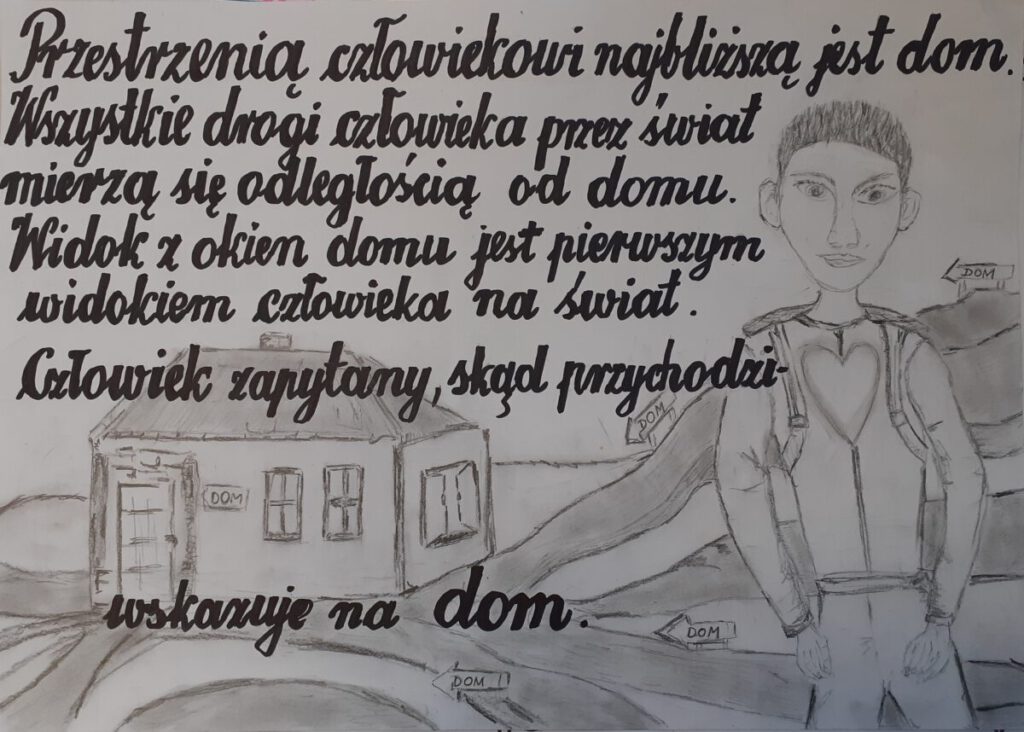 Przestrzenią człowiekowi najbliższą jest dom.
Wszystkie drogi człowieka przez świat
mierzą się odległością od domu.
Widok z okien domu jest pierwszym
widokiem człowieka na świat.
Człowiek zapytany, skąd przychodzi-
wskazuje na dom.
DOM
DOM
DOM
DOM
DOM